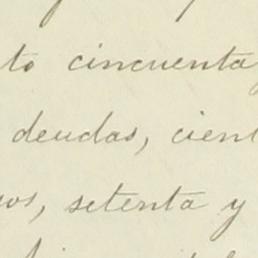 to cincuenta
deudas, cient
os, setenta y